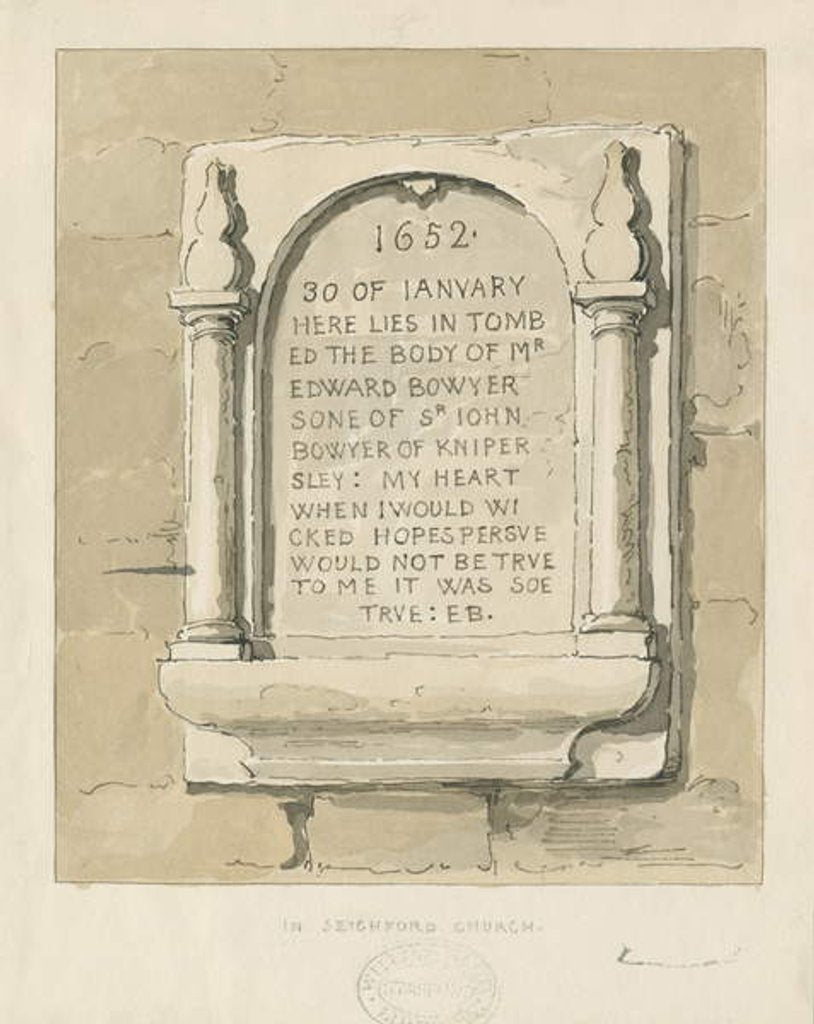 1652.
30 OF IANVARY
HERE LIES IN TOMB
ED THE BODY OF MR
EDWARD BOWYER
SONE OF SR IOHN
BOWYER OF KNIPER
SLEY: MY HEART
WHEN I WOULD WI
CKED HOPES PERSVE
WOULD NOT BE TRVE
TO ME IT WAS SOE
TRVE: EB.
IN SEIGHFORD CHURCH.